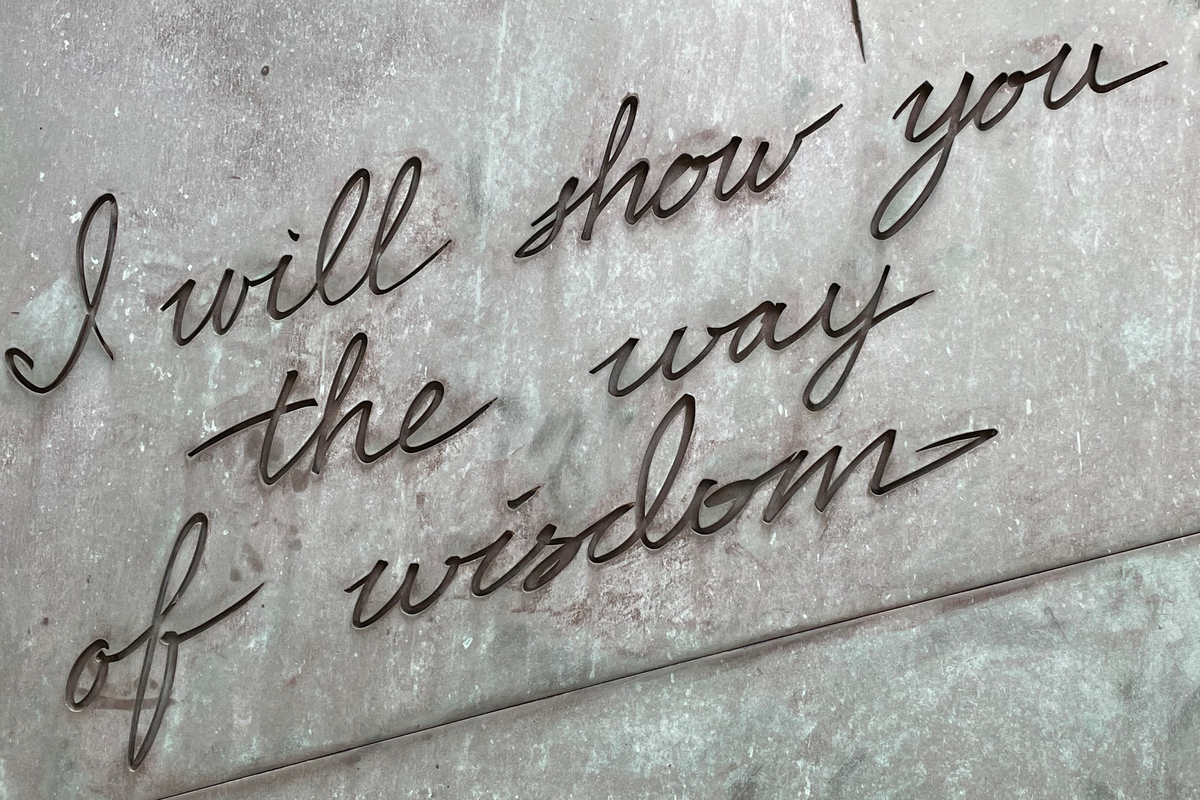 I will show you
the way
of wisdom